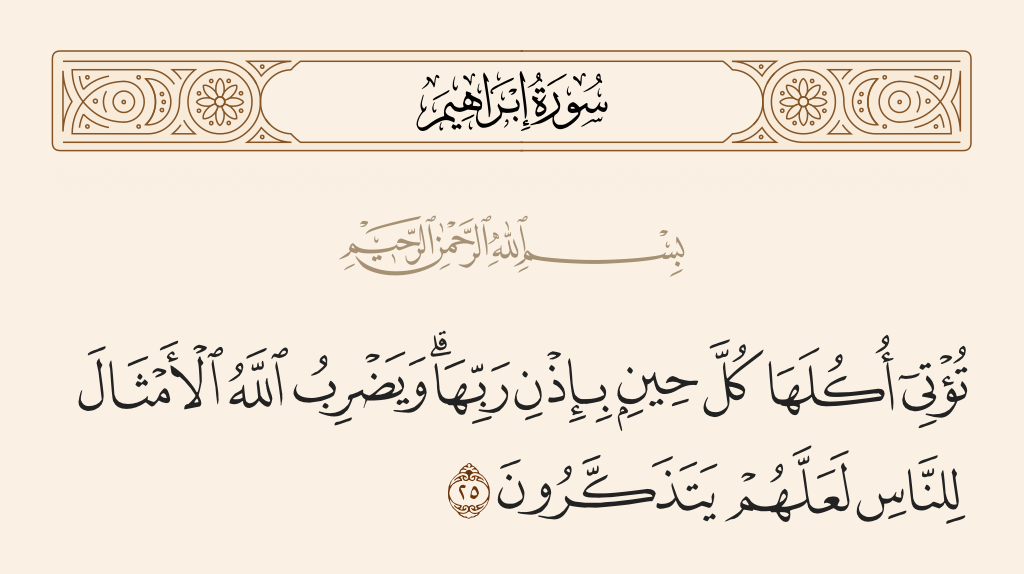 سُورَةُ إِبْرَاهِيمَ
بِسْمِ ٱللَّهِ ٱلرَّحْمَٰنِ ٱلرَّحِيمِ
تُؤْتِىٓ أُكُلَهَا كُلَّ حِينٍۭ بِإِذْنِ رَبِّهَا ۗ وَيَضْرِبُ ٱللَّهُ ٱلْأَمْثَالَ
لِلنَّاسِ لَعَلَّهُمْ يَتَذَكَّرُونَ ٢٥